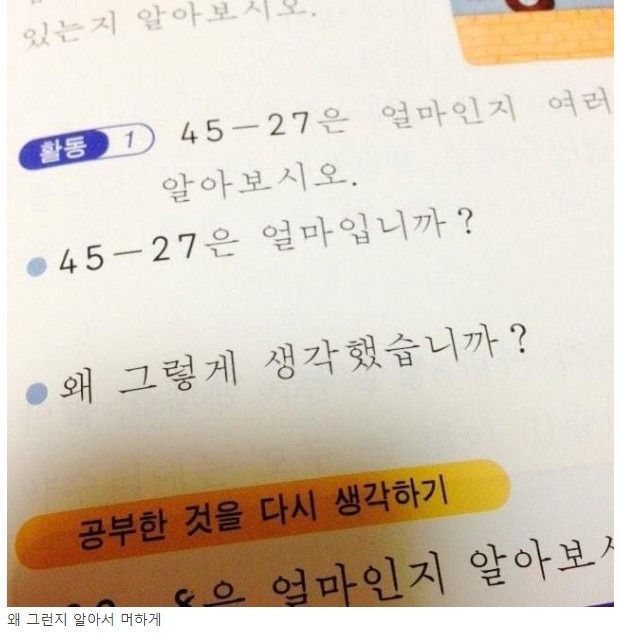 있는지 알아보시오.
활동 1 45-27은 얼마인지 여러
알아보시오.
45-27은 얼마입니까?
왜 그렇게 생각했습니까?
공부한 것을 다시 생각하기
8은 얼마인지 알아보시
왜 그런지 알아서 머하게